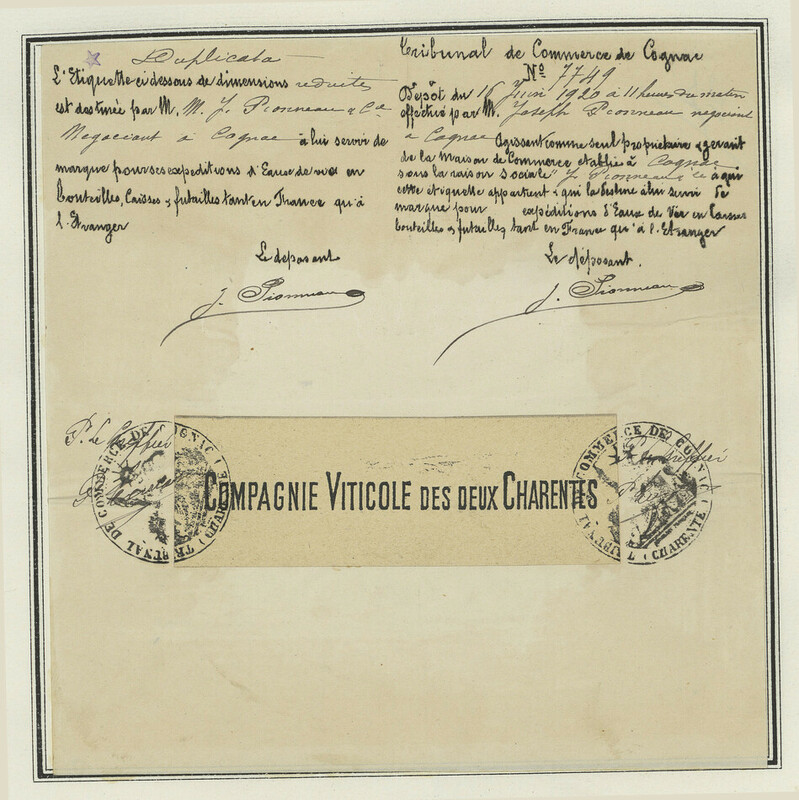 Duplicata
L'Etiquette ci dessous de dimensions réduites
est destinée par M. M. J. Pionneau & Cie
Negociant à Cognac à lui servir de
marque pour ses expéditions d'Eaux de vie en
bouteilles, Caisses & futailles tant en France qu'à
l'Etranger
Le déposant
J. Pionneau
Tribunal de Commerce de Cognac
No 7749
Dépôt du 16 Juin 1920 à 11 heures du matin
effectué par M. Joseph Pionneau negociant
à Cognac Agissant comme seul propriétaire & gerant
de la Maison de Commerce etablie à Cognac
sous la raison sociale "J. Pionneau & Cie à qui
cette etiquette appartient & qui la destine à lui servir de
marque pour expéditions d'Eaux de Vie en Caisses
bouteilles & futailles tant en France qu'à l'Etranger
Le déposant.
J. Pionneau
Pr Le Greffier
TRIBUNAL DE COMMERCE DE COGNAC (CHARENTE)
COMPAGNIE VITICOLE DES DEUX CHARENTES
Greffier
TRIBUNAL DE COMMERCE DE COGNAC (CHARENTE)